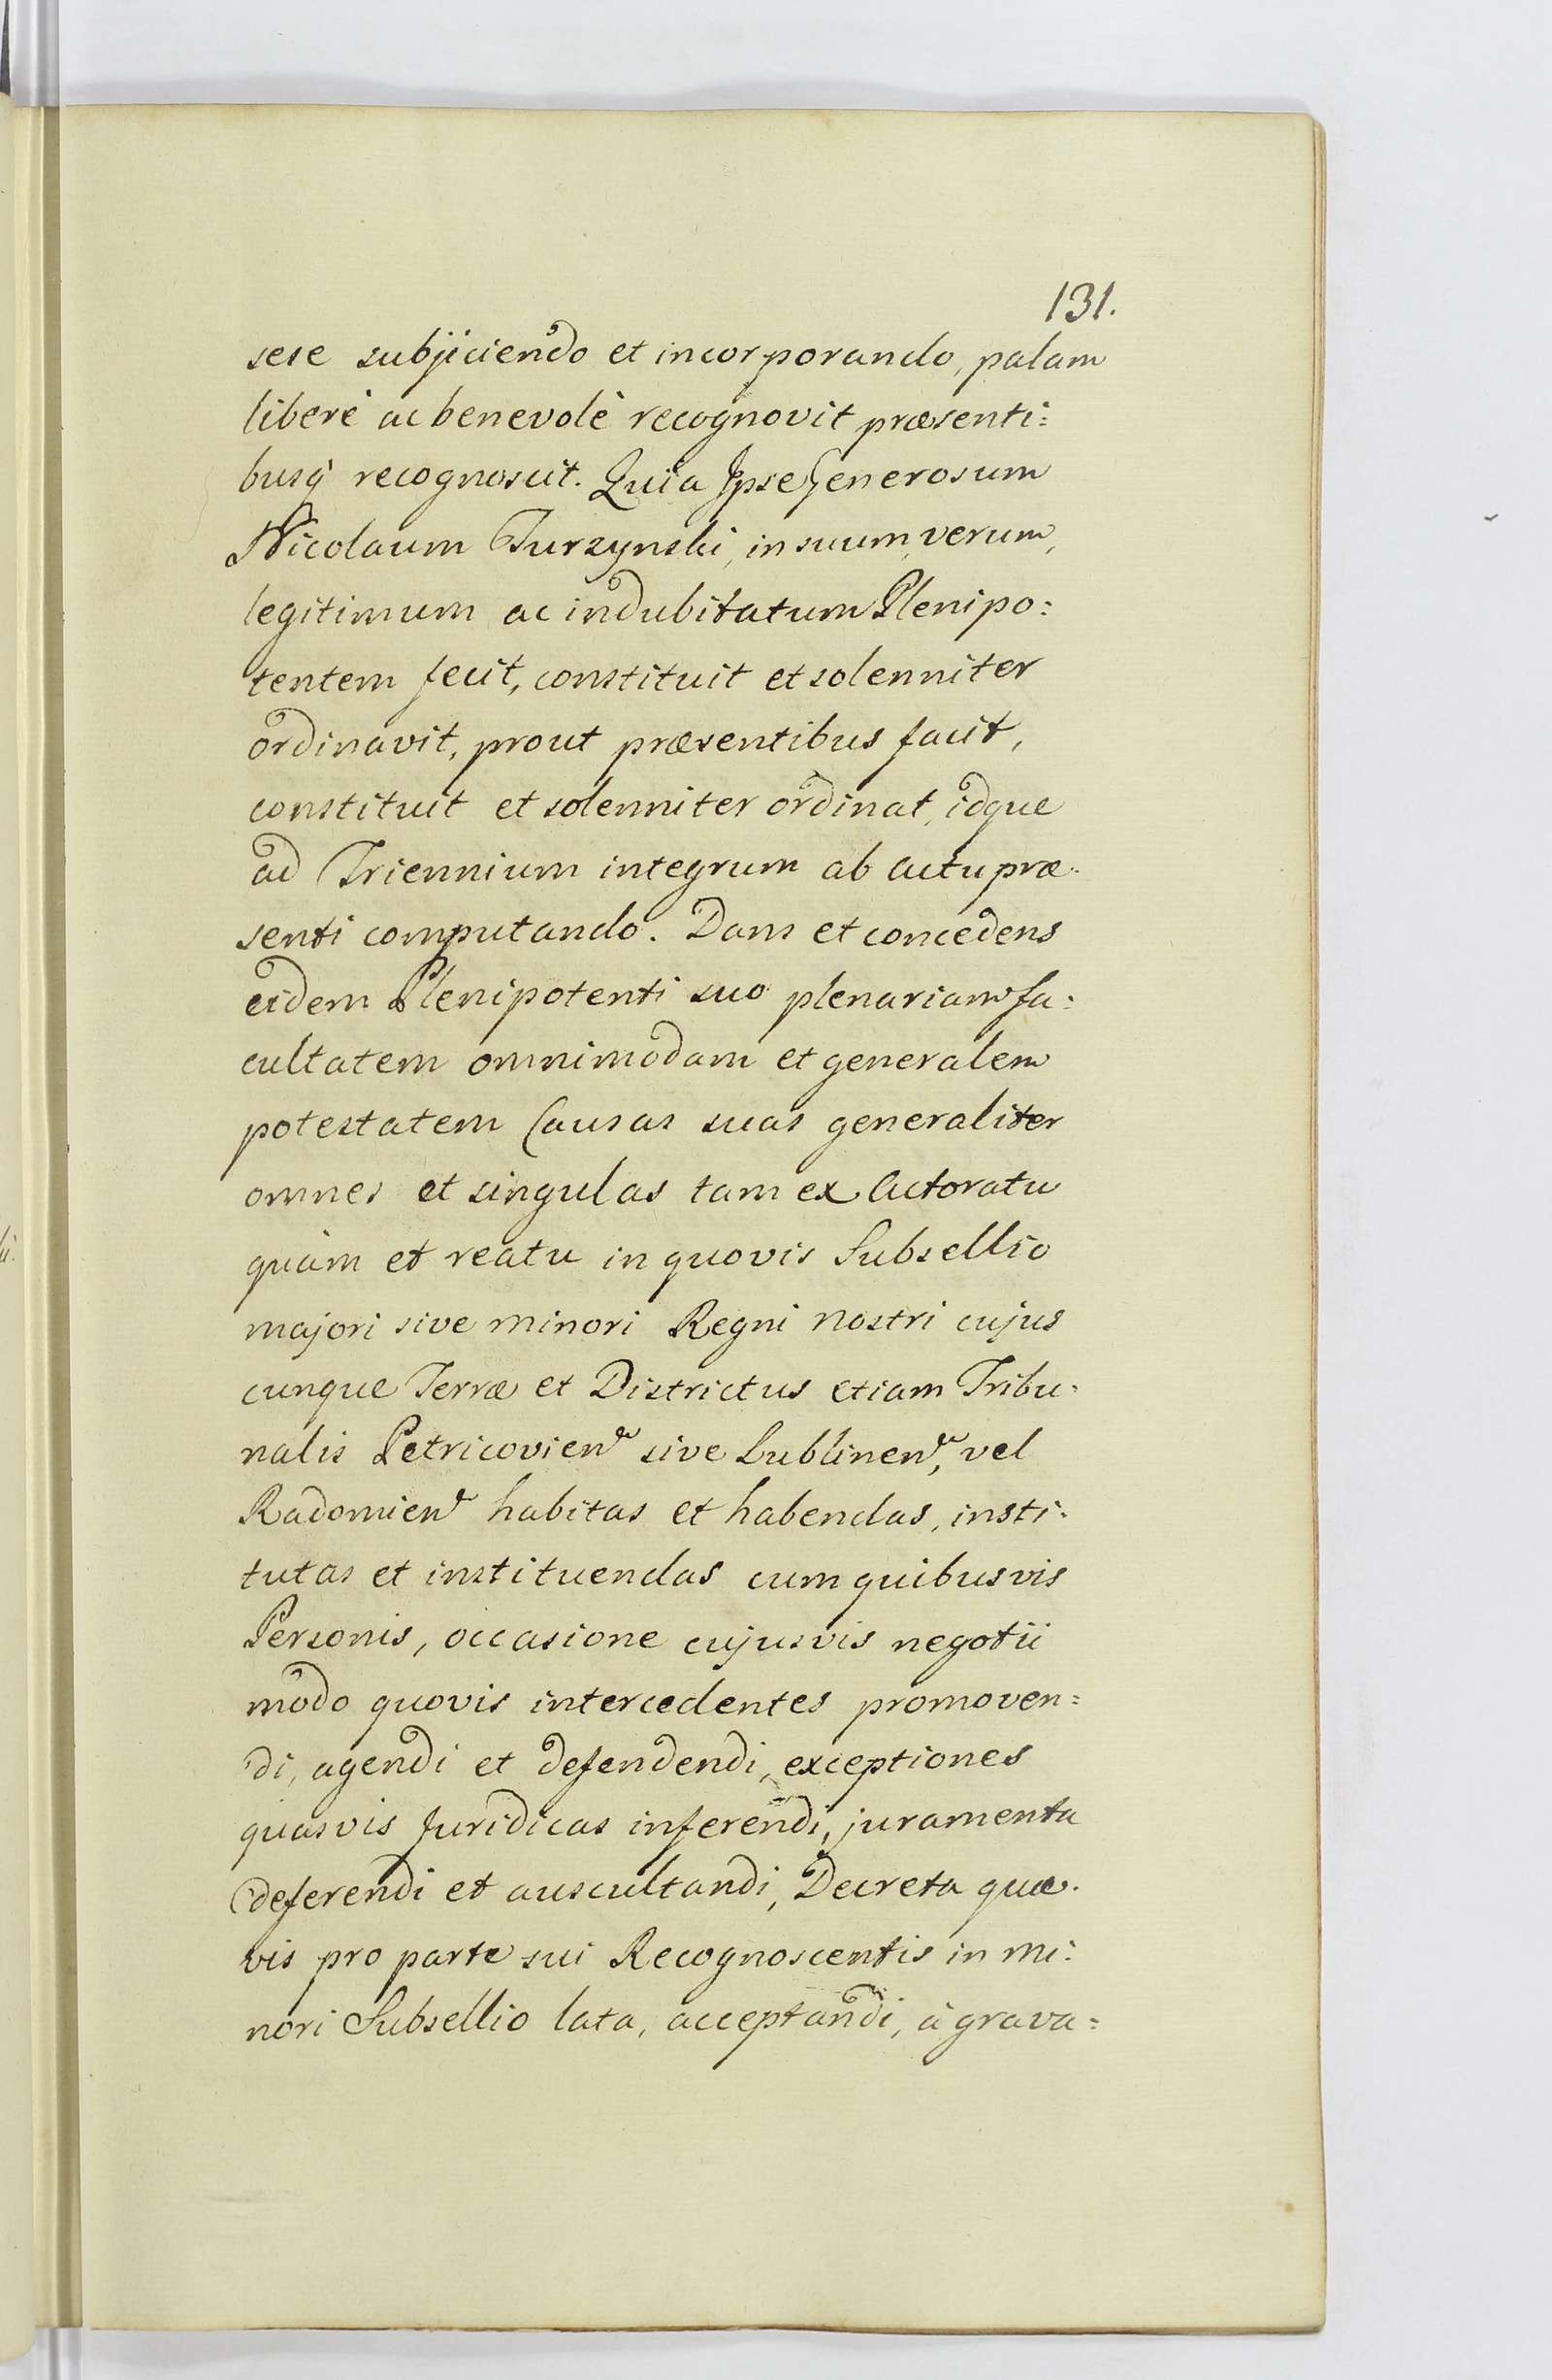 131.
sese subjiciendo et incorporando, palam
liberè ac benevolè recognovit præsenti:
busq recognoscit. Quia Ipse Generosum
Nicolaum Turzynski, in suum, verum,
legitimum ac indubitatum Plenipo:
tentem fecit, constituit et solenniter
ordinavit, prout præsentibus facit,
constituit et solenniter ordinat, idque
ad Triennium integrum ab actu præ-
senti computando. Dans et concedens
eidem Plenipotenti suo plenariam fa:
cultatem omnimodam et generalem
potestatem Causas suas generaliter
omnes et singulas tam ex Actoratu
quàm et reatu in quovis Subsellio
majori sive minori Regni nostri cujus
cunque Terræ et Districtus etiam Tribu-
nalis Petricovien sive Lublinen, vel
Radomien habitas et habendas, insti-
tutas et instituendas cum quibusvis
Personis, occasione cujusvis negotii
modo quovis intercedentes promoven=
di, agendi et defendendi, exceptiones
quasvis Juridicas inferendi, juramenta
deferendi et auscultandi, Decreta quæ-
vis pro parte sui Recognoscentis in mi:
nori Subsellio lata, acceptandi, à grava=